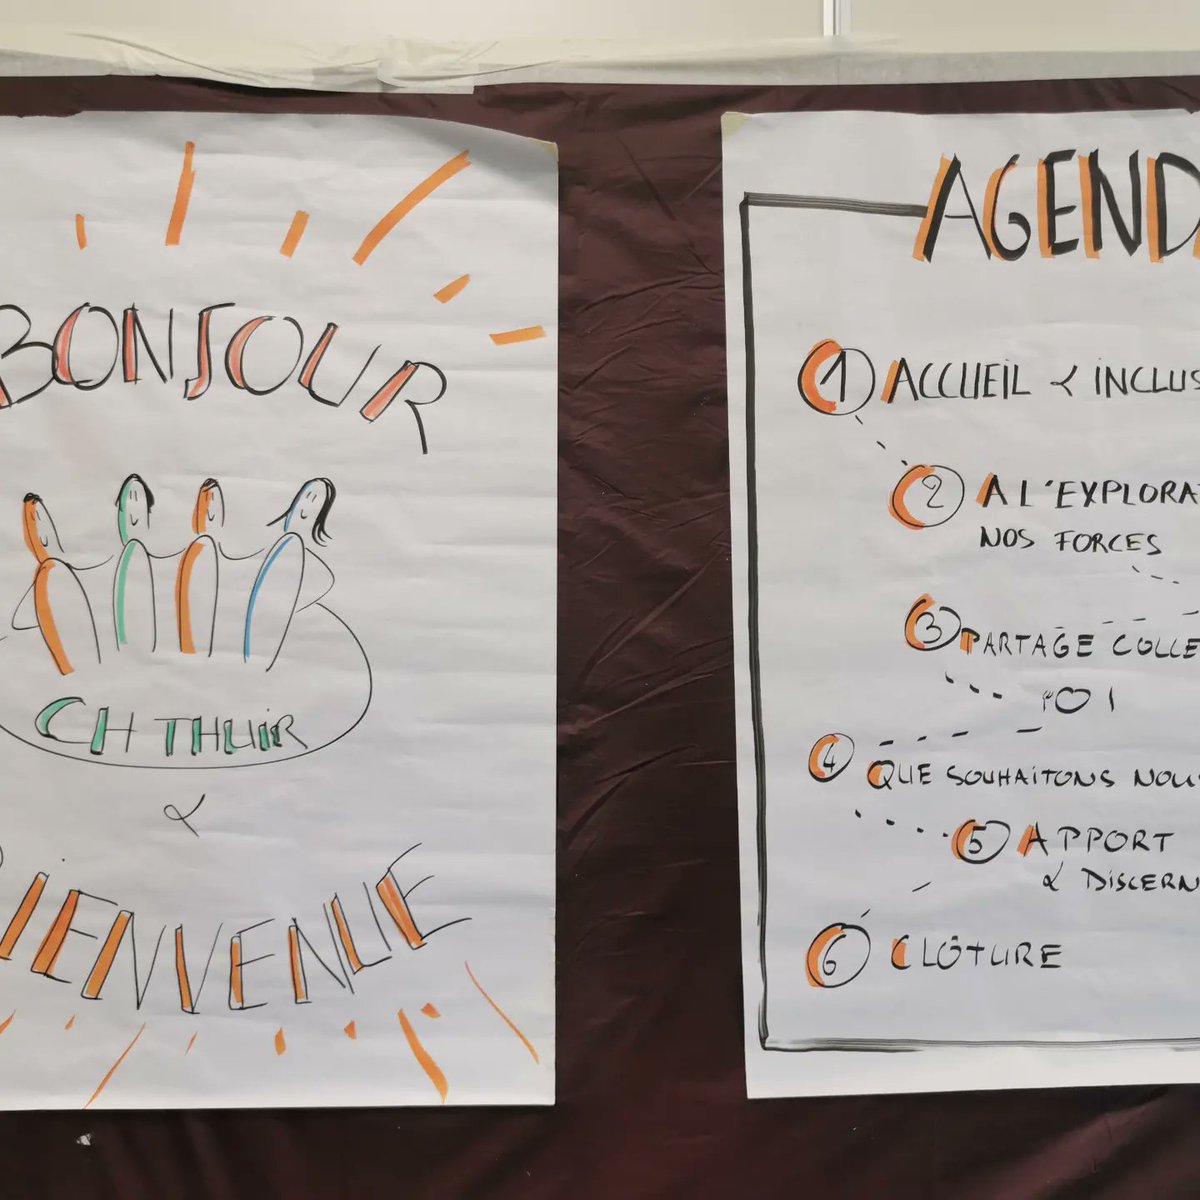 BONJOUR
CH THUIR
&
BIENVENUE
AGENDA
1 ACCUEIL & INCLUS
2 A L'EXPLORA
NOS FORCES
3 PARTAGE COLLE
4 QUE SOUHAITONS NOUS
5 APPORT
& DISCERN
6 CLÔTURE